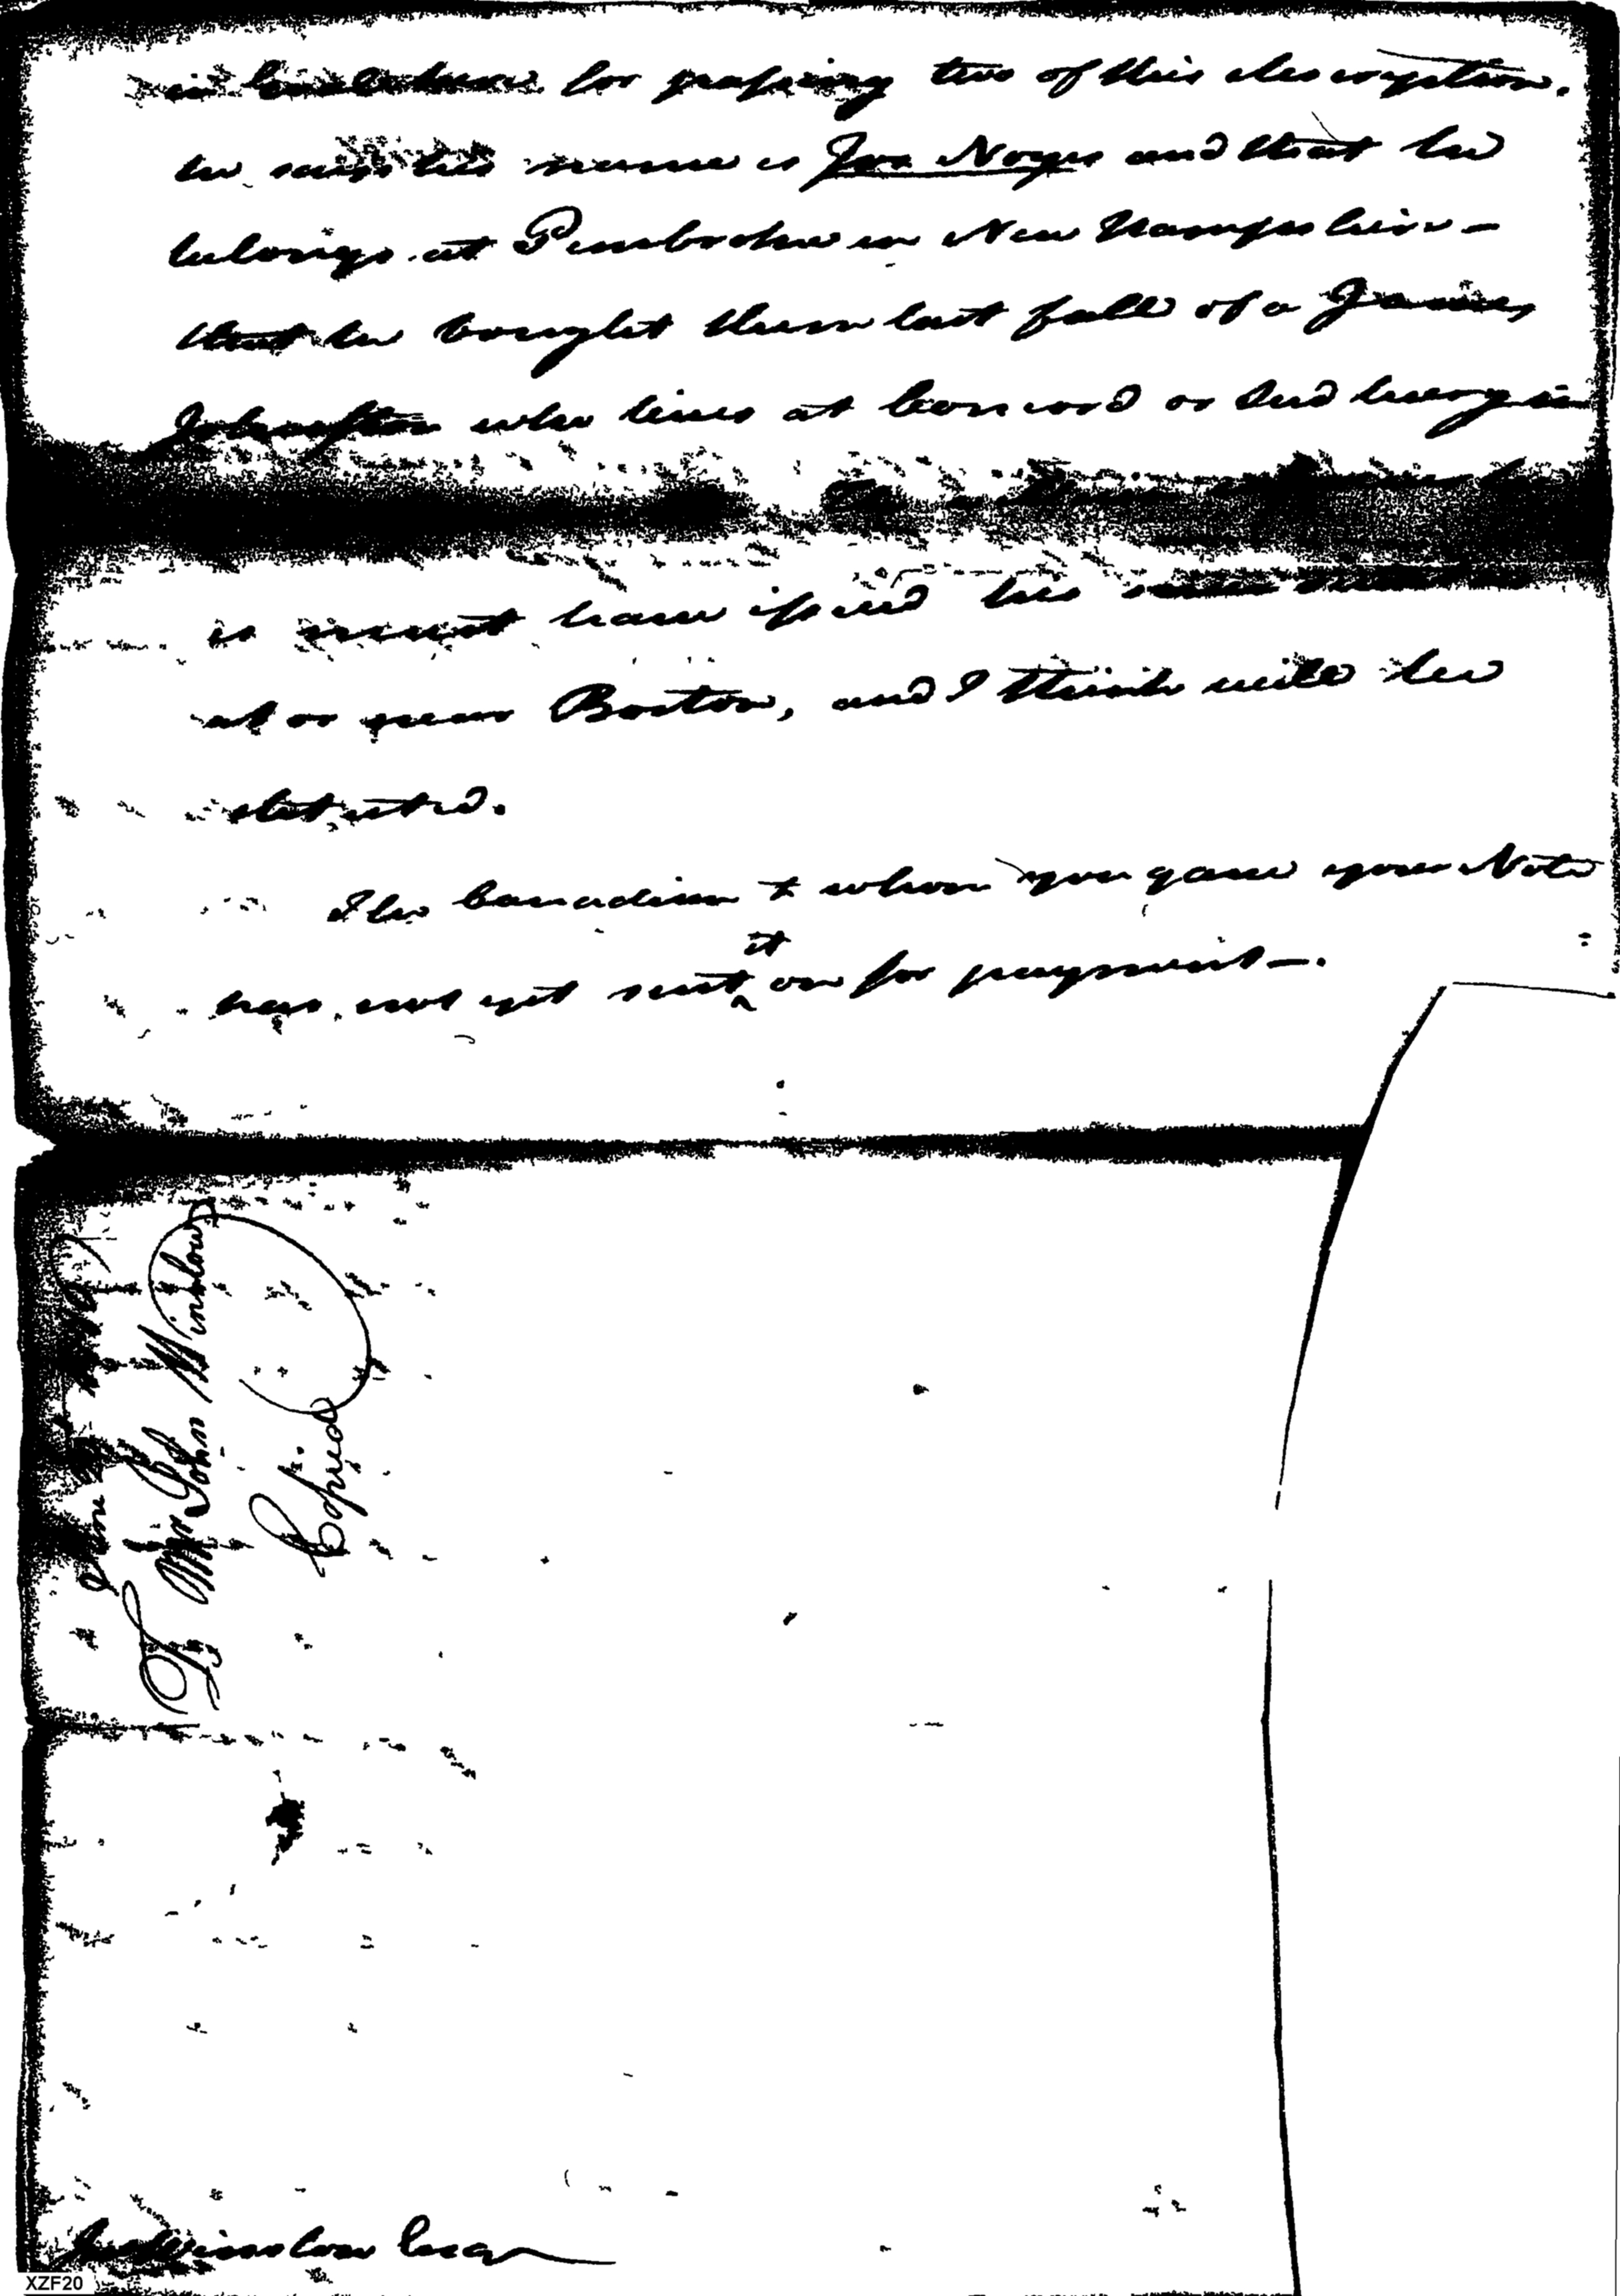 for passing two of this description.
he says his name is Jos Noyes and that he
belongs at Pembroke in New Hampshire —
that he bought them last fall of a James
Johnston who lives at Concord or Sudbury in
is must have issued his
at or near Boston, and I think will be
detected.
The Canadian to whom you gave your Note
it
has not yet sent ^ on for payment —.
To Mr John Winslow
Copied
Jno Winslow Esqr
XZF20